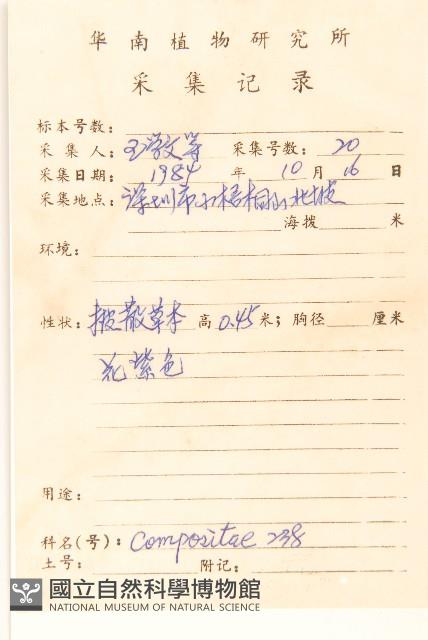 华南植物研究所
采集记录
标本号数:
采集人: 王学文等 采集号数: 20
采集日期: 1984年10月16日
采集地点: 深圳市小梧桐山北坡
海拨 米
环境:
性状: 披散草本 高0.45米; 胸径 厘米
花紫色
用途:
科名(号): Compositae 238
土号: 附记:
國立自然科學博物館
NATIONAL MUSEUM OF NATURAL SCIENCE